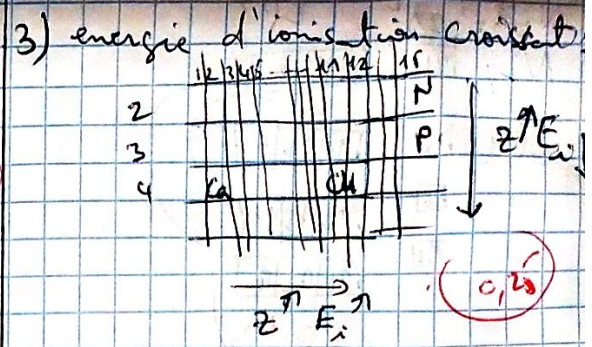 3) energie d'ionisation croissant:
1 2 3 4 5 11 12 15
2 N
3 P
4 Ca Cu
Z↑ Ei↓
Z↑ Ei↑
0,25